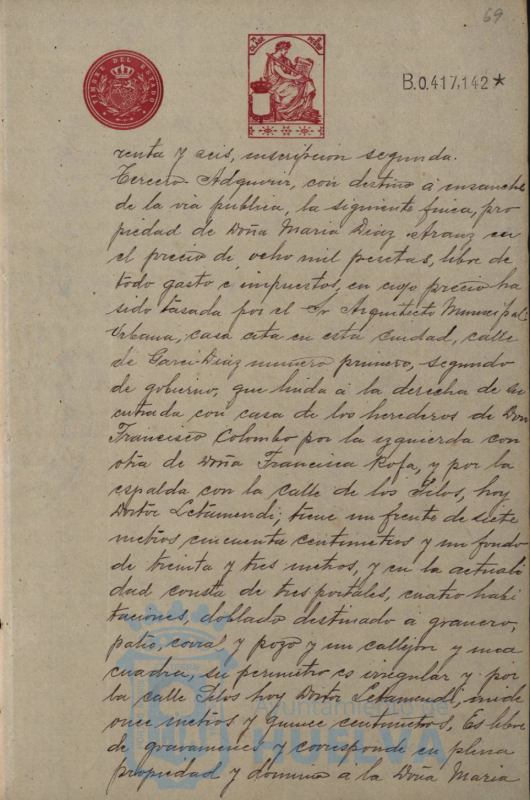 69
TIMBRE DEL ESTADO
B.0.417,142*
renta y seis, inscripcion segunda.
Tercero. Adquirir, con destino á ensanche
de la via publica, la siguiente finca, pro
piedad de Doña Maria Diaz Aranz en
el precio de ocho mil pesetas, libre de
todo gasto é impuestos, en cuyo precio ha
sido tasada por el Sr Arquitecto Municipal.
Urbana; casa cita en esta ciudad, calle
de Garci-Diaz numero primero, segundo
de gobierno, que linda á la derecha de su
entrada con casa de los herederos de Don
Francisco Colombo por la izquierda con
otra de Doña Francisca Rofa, y por la
espalda con la calle de los Silos, hoy
Doctor Letamendi; tiene un frente de siete
metros cincuenta centimetros y un fondo
de treinta y tres metros, y en la actuali
dad consta de tres portales, cuatro habi
taciones, doblado destinado a granero,
patio, corral y pozo y un callejon y una
cuadra, su perimetro es irregular y por
la calle Silos hoy Doctor Letamendi, mide
once metros y quince centimetros, Es libre
de gravamenes y corresponde en plena
propiedad y dominio á la Doña Maria
Ayuntamiento de
HUELVA